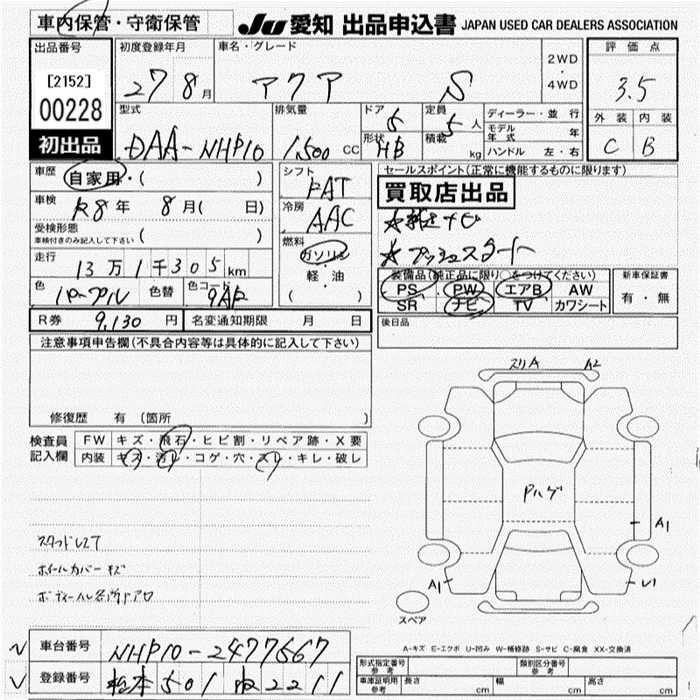 車内保管・守衛保管
JU 愛知 出品申込書 JAPAN USED CAR DEALERS ASSOCIATION
出品番号
[2152]
00228
初出品
初度登録年月
27 8月
車名・グレード
アクア S
2WD
・
4WD
評価点
3.5
外装 内装
C B
型式
DAA-NHP10
排気量
1,500 CC
ドア
5
形状
HB
定員
5 人
積載
kg
ディーラー・並行
モデル年式 年
ハンドル 左・右
車歴
自家用・( )
車検
R8年 8月( 日)
受検形態
車検付きのみ記入して下さい ( )
走行
13万1千305km
色
パープル
色替
色コード
9AF
シフト
FAT
冷房
AAC
燃料
ガソリン
軽・油
( )
セールスポイント(正常に機能するものに限ります)
買取店出品
☆純正ナビ
☆プッシュスタート
装備品(純正品に限り○をつけてください)
PS PW エアB AW
SR ナビ TV カワシート
新車保証書
有・無
R券 9,130 円 名変通知期限 月 日
後日品
注意事項申告欄(不具合内容等は具体的に記入して下さい)
修復歴 有(箇所 )
検査員記入欄
FW キズ・飛石・ヒビ割・リペア跡・X要
内装 キズ・汚レ・コゲ・穴・スレ・キレ・破レ
スリA A2
Pハゲ
A1
A1
U1
スペア
スタッドレス7
ホイールカバー キズ
ボディーハレ各所ドアロ
A-キズ E-エクボ U-凹み W-補修跡 S-サビ C-腐食 XX-交換済
車台番号 NHP10-2477567
登録番号 松本 501 ね 2211
形式指定番号 参考
類別区分番号 参考
車庫証明用 参考 長さ cm 幅 cm 高さ cm